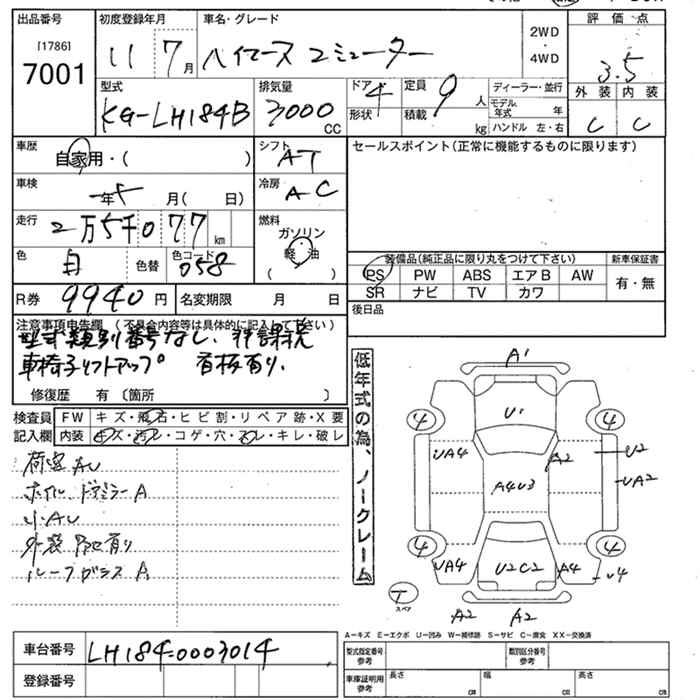 出品番号 初度登録年月 車名・グレード 2WD ・ 4WD 評価点
[1786]
7001 11 7月 ハイエース コミューター 3.5
型式 排気量 ドア 形状 定員 積載 ディーラー・並行 外装 内装
KG-LH184B 3000 CC 4 9 人 kg モデル年式 年 ハンドル 左・右 C C
車歴 自家用・( ) シフト AT セールスポイント(正常に機能するものに限ります)
車検 年 月( 日) 冷房 AC
走行 2万5千077 km 燃料 ガソリン 軽油 ( )
色 白 色替 色コード 058
装備品(純正品に限り丸をつけて下さい) 新車保証書
PS PW ABS エアB AW 有・無
SR ナビ TV カワ
R券 9940円 名変期限 月 日 後日品
注意事項申告欄 (不具合内容等は具体的に記入して下さい)
型式類別番号なし.
車椅子リフトアップ 看板有り.
修復歴 有 〔箇所 〕
検査員 FW キズ・飛石・ヒビ割・リペア跡・X要
記入欄 内装 キズ・汚れ・コゲ・穴・スレ・キレ・破レ
荷室AU
ホイル.ドアミラーA
小AU
外装 有り
ルーフガラスA
低年式の為、ノークレーム
A1
4 U1 4
UA4 A2 U2
A4U3 UA2
4 4
UA4 U2C2 A4 U4
T スペア
A2 A2
A-キズ E-エクボ U-凹み W-補修跡 S-サビ C-腐食 XX-交換済
車台番号 LH184-0003014
登録番号
型式指定番号 参考 類別区分番号 参考
車庫証明用 参考 長さ cm 幅 cm 高さ cm